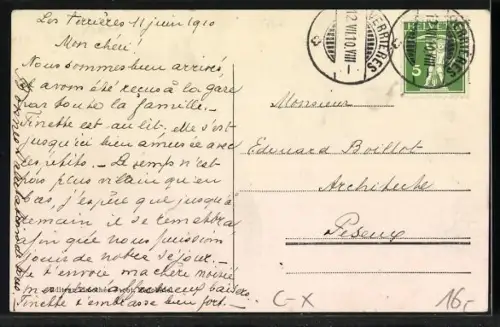 Les Verrières 11 juin 1910
Mon chéri!
Nous sommes bien arrivés,
et avons été reçus à la gare
par toute la famille.
Finette est au lit; elle s'est
jusqu'ici bien amusée avec
les petits. Le temps n'est
pas plus vilain qu'en
bas, j'espère que jusqu'à
demain il se remettra
afin que nous puissions
jouir de notre séjour.
Je t'envoie ma chère moitié
mes plus affectueux baisers
Finette t'embrasse bien fort.
12.VII.10.VIII
VERRIÈRES
HELVETIA
5
Monsieur
Edouard Boillot
Architecte
Peseux
C-X
16.-